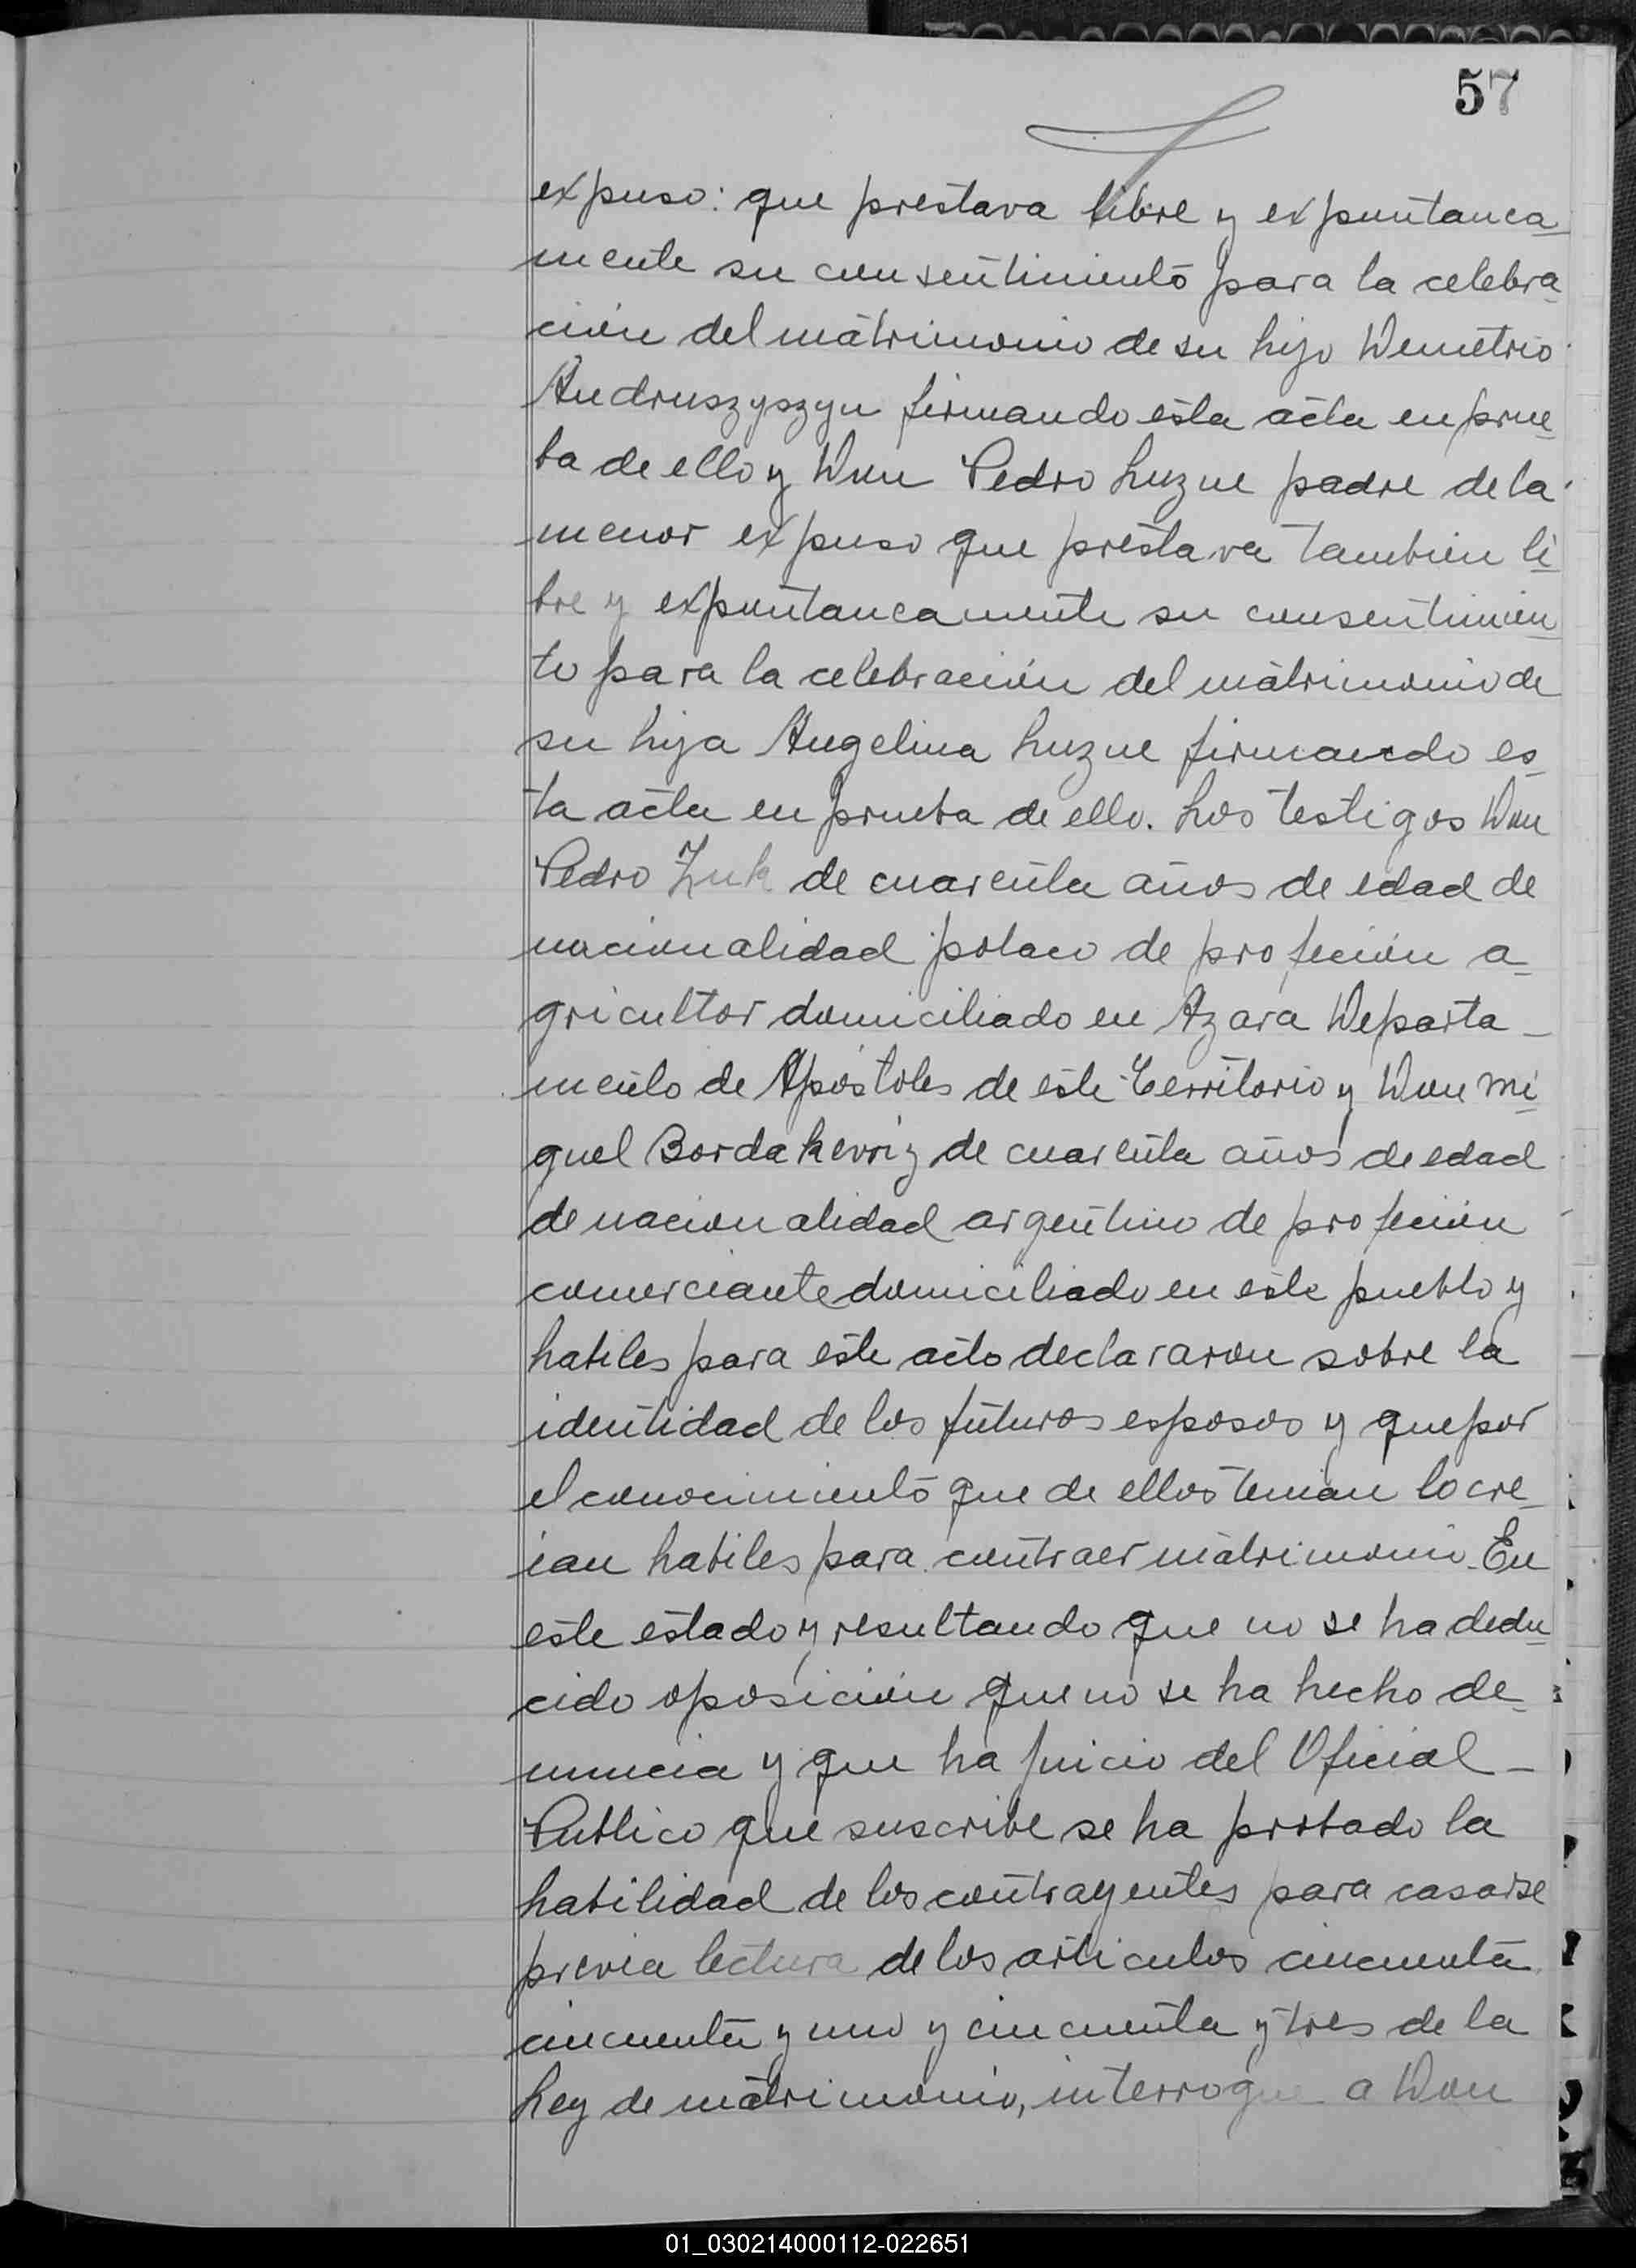 57
expuso: que prestava libre y expontanea
mente su consentimiento para la celebra
ción del matrimonio de su hijo Demetrio
Andruszyszyn firmando esta acta en prue
ba de ello y Don Pedro Luzne padre de la
menor expuso que prestava tambien li
bre y expontaneamente su consentimien
to para la celebración del matrimonio de
su hija Angelina Luzne firmando es
ta acta en prueba de ello. Los testigos Don
Pedro Zuk de cuarenta años de edad de
nacionalidad polaco de profeción a
gricultor domiciliado en Azara Departa-
mento de Apóstoles de este Territorio y Don Mi
guel Bordakevriz de cuarenta años de edad
de nacionalidad argentino de profeción
comerciante domiciliado en este pueblo y
habiles para este acto declararon sobre la
identidad de los futuros esposos y que por
el conocimiento que de ellos tenian lo cre
ian habiles para contraer matrimonio. En
este estado y resultando que no se ha dedu
cido oposición que no se ha hecho de
nuncia y que ha juicio del Oficial -
Publico que suscribe se ha probado la
habilidad de los contrayentes para casarse
previa lectura de los articulos cincuenta
cincuenta y uno y cincuenta y tres de la
Ley de matrimonio, interrogue a Don
01_030214000112-022651